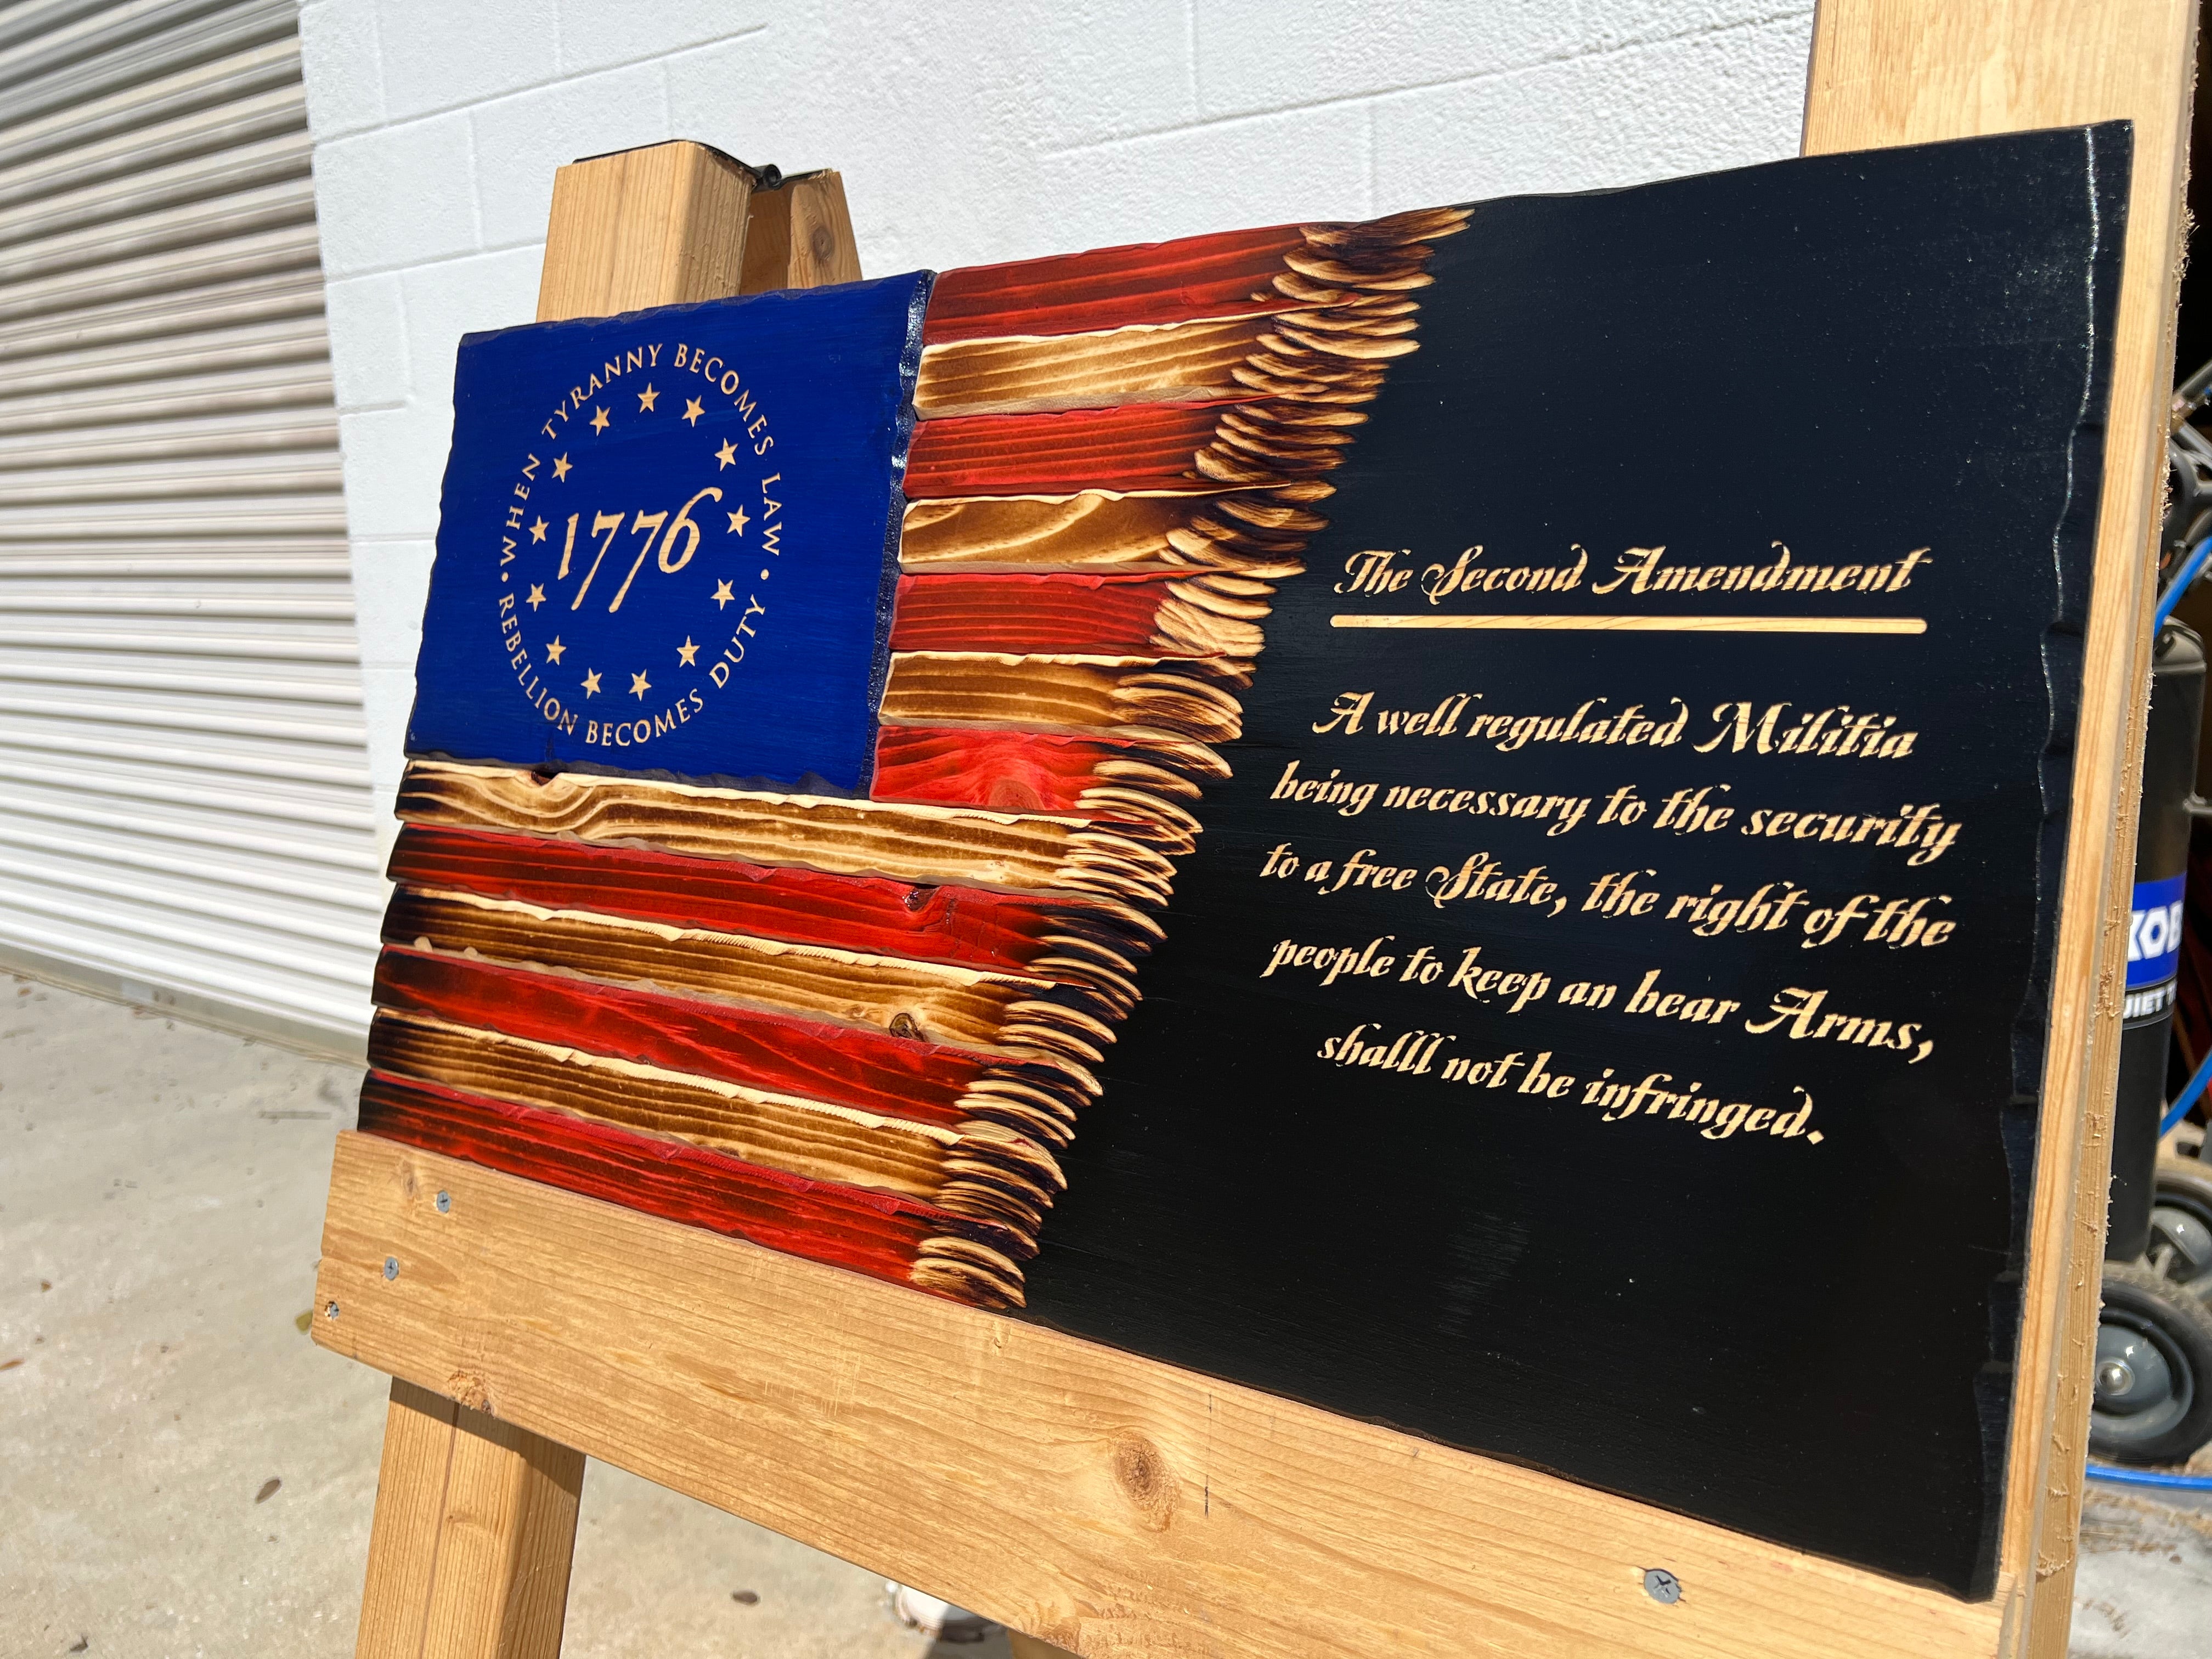 WHEN TYRANNY BECOMES LAW •
REBELLION BECOMES DUTY •
1776
The Second Amendment
A well regulated Militia
being necessary to the security
to a free State, the right of the
people to keep an bear Arms,
shalll not be infringed.
KOB